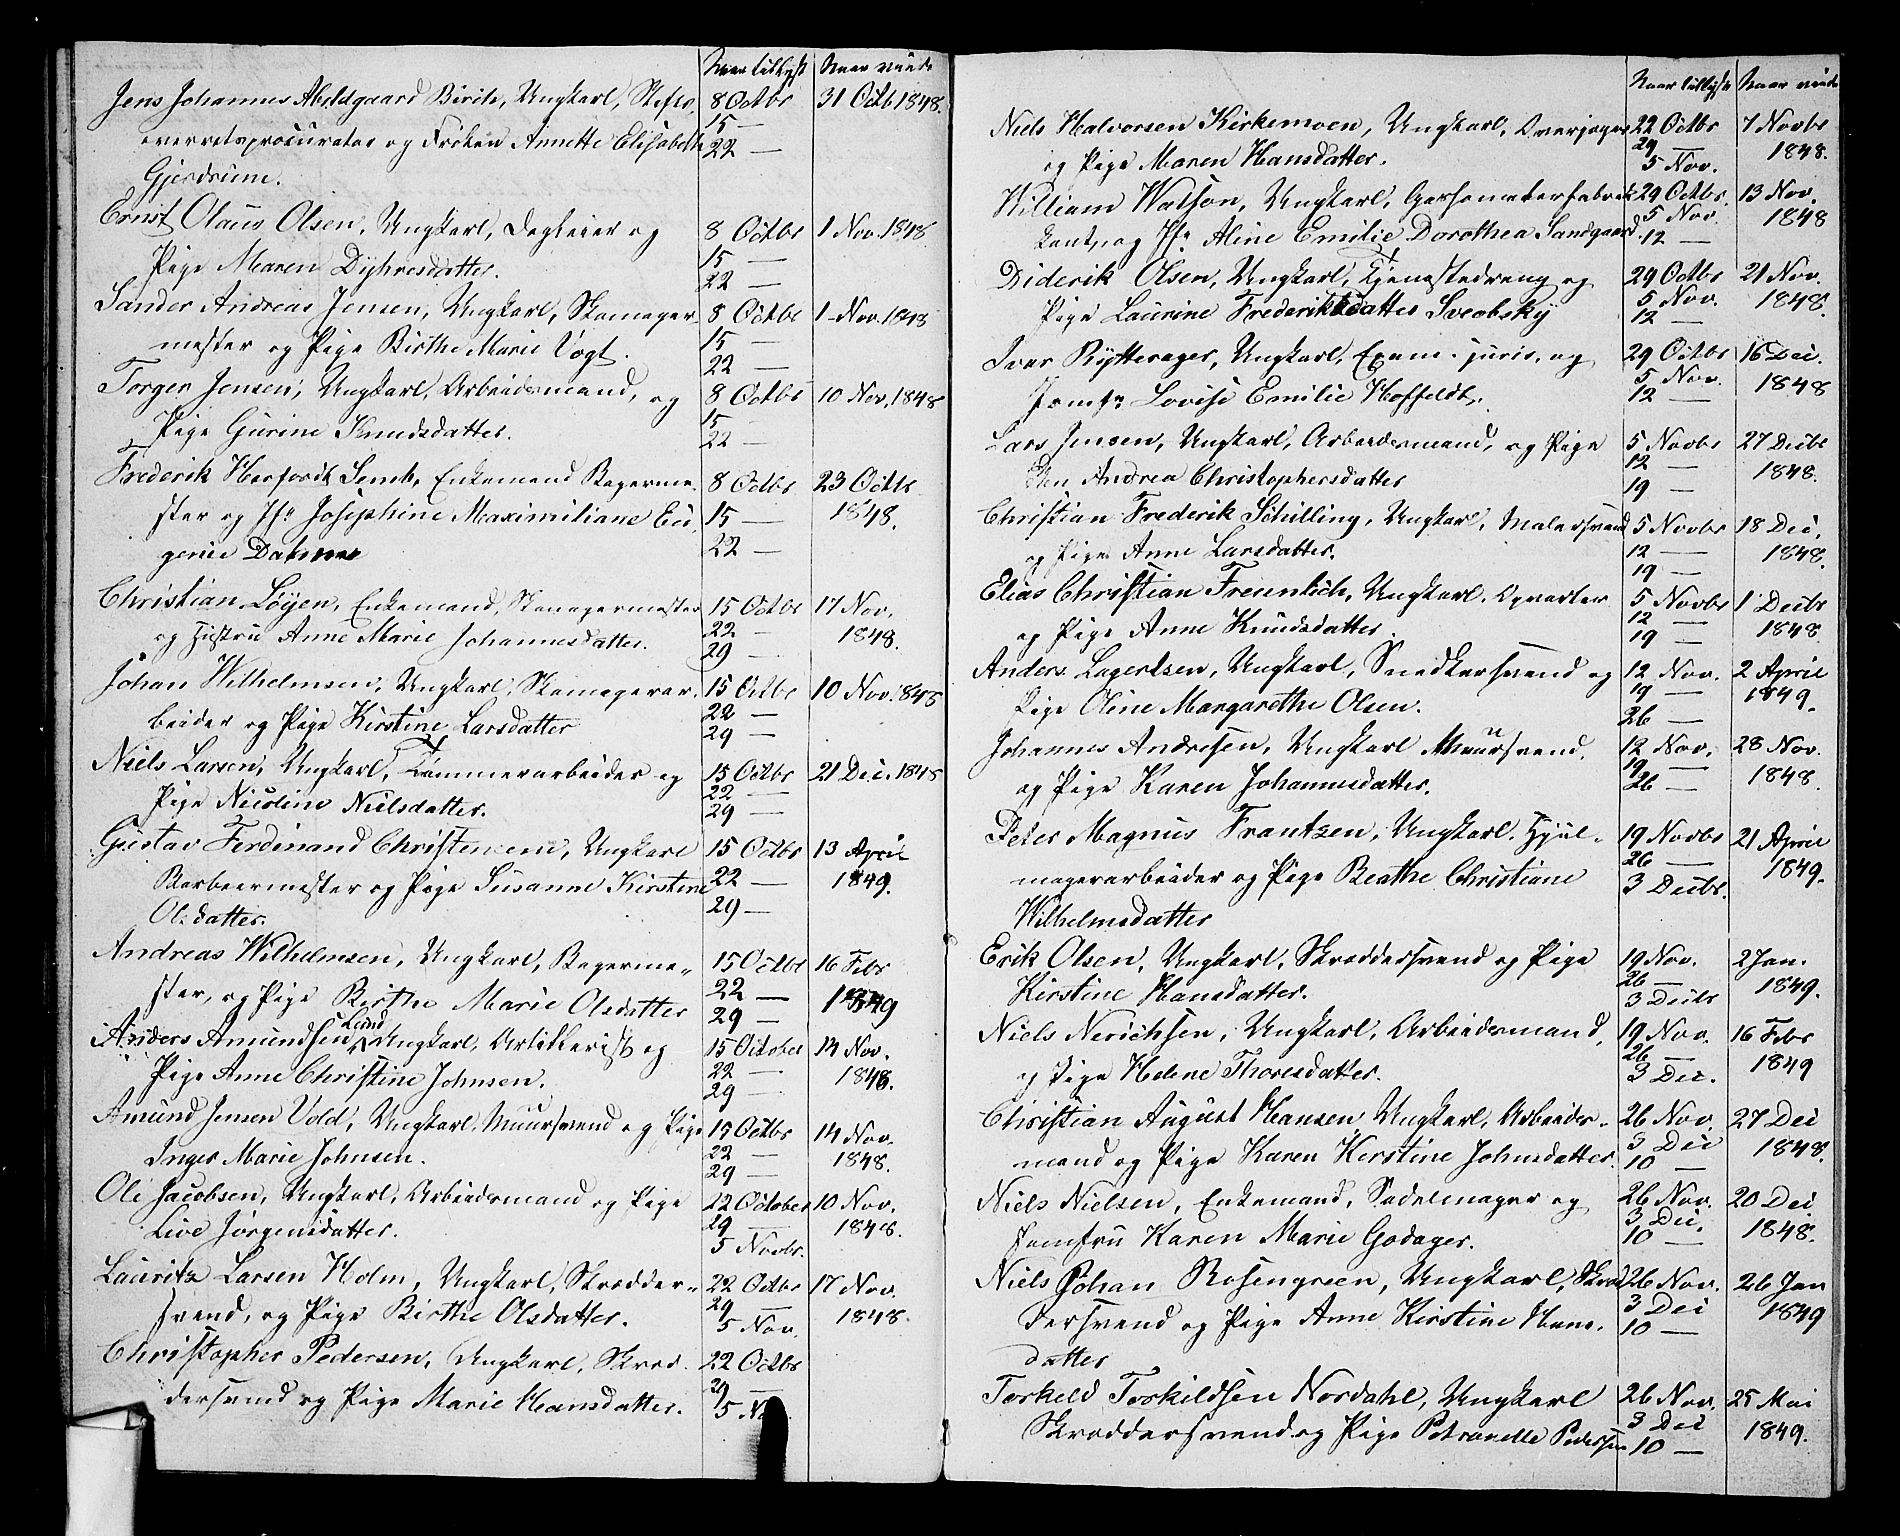 Naar tillyst Naar viede
Jens Johannes Abeldgaard Birch, Ungkarl, Stifts, 8 Octbr 31 Octb. 1848.
overretsprocurator og Frøken Annette Elisabeth 15 —
Gjerdrum. 22 —
Ernst Olaus Olsen, Ungkarl, Dagleier og 8 Octbr 1 Nov. 1848.
Pige Maren Dyhresdatter. 15 —
22 —
Sander Andreas Jensen, Ungkarl, Skomager- 8 Octbr 1 Nov. 1848
mester og Pige Birthe Marie Vogt. 15 —
22 —
Torger Jensen, Ungkarl, Arbeidsmand, og 8 Octbr 10 Nov, 1848
Pige Gurine Knudsdatter. 15 —
22 —
Frederik Herfordt Enkemand Bagerme- 8 Octbr 23 Octbr
ster og Jfr Josephine Maximiliane Eu- 15 — 1848.
genie 22 —
Christian Løyen, Enkemand, Skomagermester 15 Octbr 17 Nov,
og Hustru Anne Marie Johannesdatter. 22 — 1848.
29 —
Johan Wilhelmsen, Ungkarl, Skomagerar- 15 Octbr 10 Nov. 1848
beider og Pige Kirstine Larsdatter 22 —
29 —
Niels Larsen, Ungkarl, Tømmerarbeider og 15 Octbr 21 Dec. 1848
Pige Nicoline Nielsdatter. 22 —
29 —
Gustav Ferdinand Christensen, Ungkarl 15 Octbr 13 April
Barbeermester og Pige Susanne Kirstine 22 — 1849.
Olsdatter. 29 —
Andreas Wilhelmsen, Ungkarl, Bagerme- 15 Octbr 16 Febr
ster, og Pige Birthe Marie Olsdatter 22 — 1849
29 —
Anders Amundsen Lund, Ungkarl, Artillerist og 15 October 14 Nov.
Pige Anne Christine Johnsen. 22 — 1848.
29 —
Amund Jensen Vold, Ungkarl, Muursvend og Pige 15 Octbr 14 Nov.
Inger Marie Johnsen. 22 — 1848.
29 —
Ole Jacobsen, Ungkarl, Arbeidsmand og Pige 22 October 10 Nov.
Live Jørgensdatter. 29 — 1848.
5 Novbr.
Lauritz Larsen Holm, Ungkarl, Skrædder- 22 Octbr 17 Nov.
svend, og Pige Birthe Olsdatter. 29 — 1848.
5 Nov.
Christopher Pedersen, Ungkarl, Skræd- 22 Octbr
dersvend og Pige Marie Hansdatter. 29 —
5 N
Naar tillyste Naar viede
Niels Halvorsen Kirkemoen, Ungkarl, Overjæger 22 Octbr 7 Novbr
og Pige Maren Hansdatter. 29 — 1848.
5 Nov.
William Watson, Ungkarl, Gasometerfabrik- 29 Octbr. 13 Nov.
kant, og Jfr Aline Emilie Dorothea Sandgaard. 5 Nov. 1848
12 —
Diderik Olsen, Ungkarl, Tjenestedreng og 29 Octbr 21 Nov.
Pige Laurine Frederiksdatter 5 Nov. 1848.
12 —
Ivar Rytterager, Ungkarl, Exam. juris, og 29 Octbr 16 Dec.
Jomfr Lovise Emilie Hoffeldt. 5 Nov. 1848
12 —
Lars Jensen, Ungkarl, Arbeidsmand, og Pige 5 Novbr 27 Decbr
Andrea Christophersdatter 12 — 1848.
19 —
Christian Frederik Schilling, Ungkarl, Malersvend 5 Novbr 18 Dec.
og Pige Anne Larsdatter. 12 — 1848.
19 —
Elias Christian Freunlich, Ungkarl, Opvarter 5 Novbr 1 Decbr
og Pige Anne Knudsdatter. 12 — 1848.
19 —
Anders Lagertsen, Ungkarl, Snedkersvend og 12 Nov. 2 April
Pige Oline Margarethe Olsen. 19 — 1849.
26 —
Johannes Andresen, Ungkarl Muursvend, 12 Nov, 28 Nov.
og Pige Karen Johannesdatter. 19 — 1848.
26 —
Peter Magnus Frantzen, Ungkarl, Hjul- 19 Novbr 21 April
magerarbeider og Pige Beathe Christiane 26 — 1849.
Wilhelmsdatter 3 Decbr.
Erik Olsen, Ungkarl, Skræddersvend og Pige 19 Nov. 2 Jan.
Kirstine Hansdatter. 26 — 1849.
3 Decbr
Niels Nerichsen, Ungkarl, Arbeidsmand, 19 Nov. 16 Febr
og Pige Helene Thoresdatter. 26 — 1849
3 Dec.
Christian August Hansen, Ungkarl, Arbeids- 26 Nov. 27 Dec
mand og Pige Karen Kirstine Johnsdatter. 3 Dec 1848.
10 —
Niels Nielsen, Enkemand, Sadelmager og 26 Nov. 20 Dec
Jomfru Karen Marie Godager. 3 Dec. 1848.
10 —
Niels Johan Rosengreen, Ungkarl, Skræd 26 Nov. 26 Jan
dersvend og Pige Anne Kirstine Hans- 3 Dec 1849
datter 10 —
Torkeld Torkildsen Nordahl, Ungkarl 26 Nov. 25 Mai
Skræddersvend og Pige Petronelle Pedersen 3 Dec 1849.
10 —